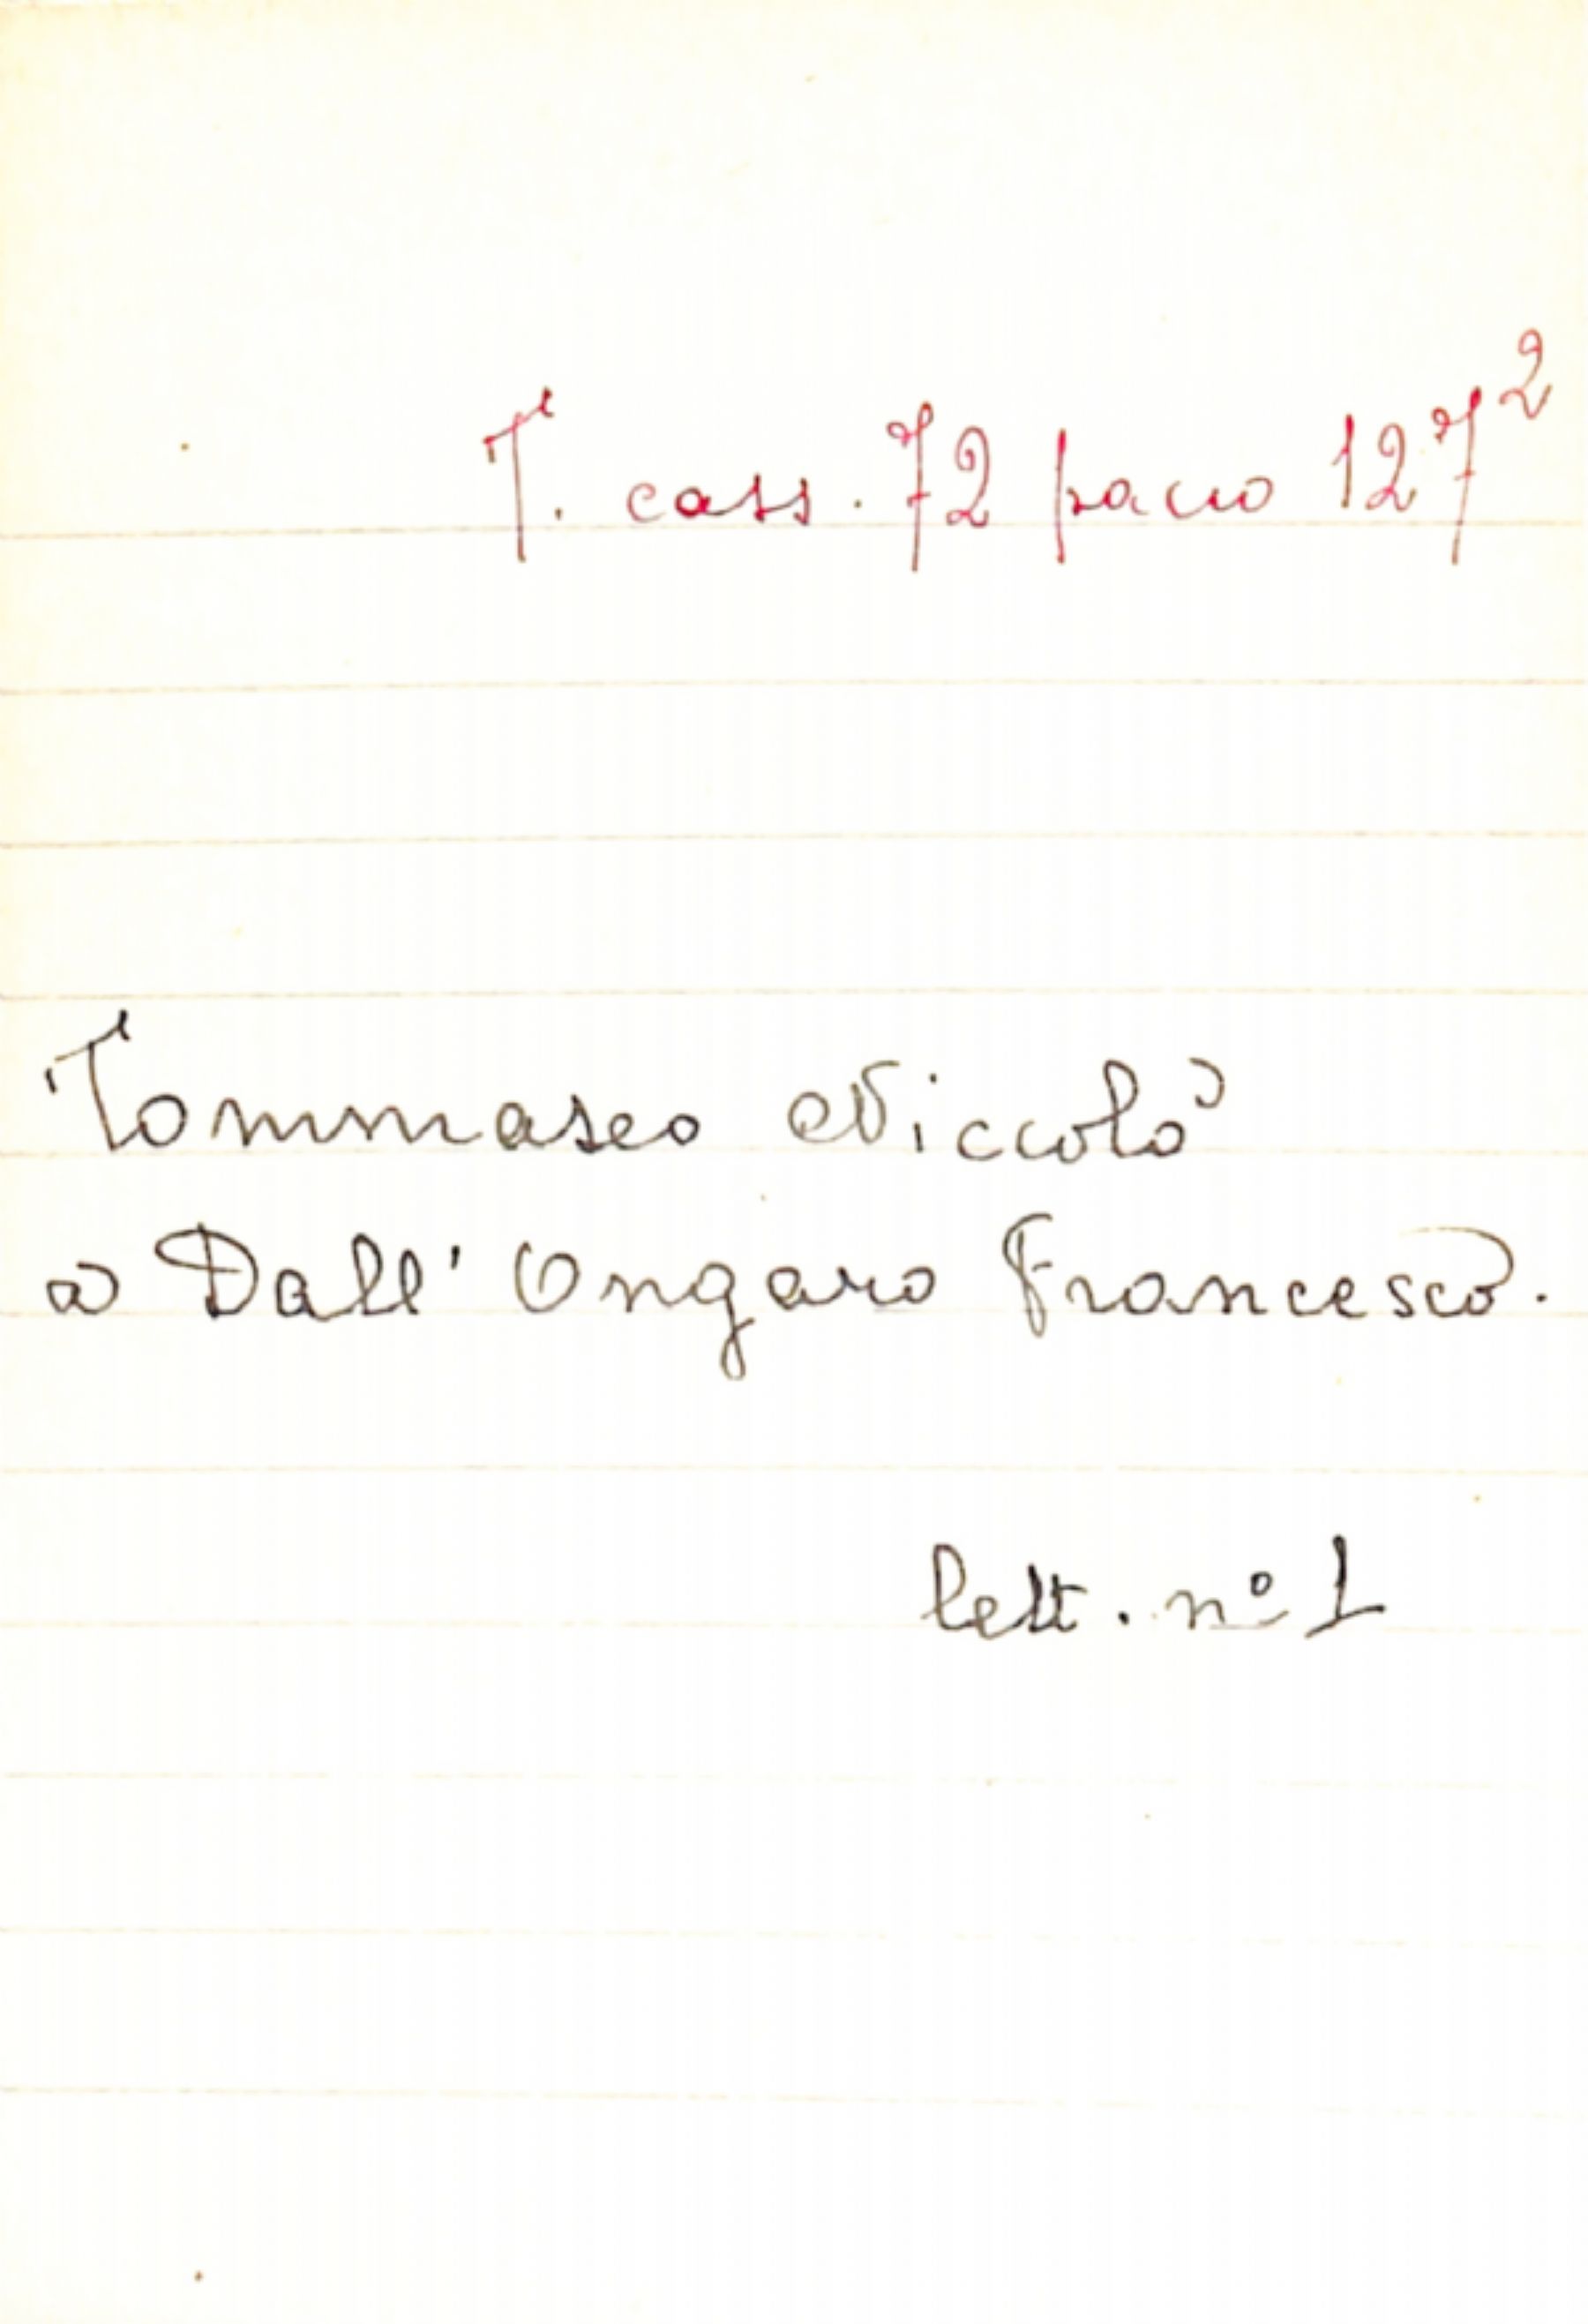 T. cass. 72 pacco 127²
Tommaseo Niccolò
a Dall' Ongaro Francesco.
lett. nº 1